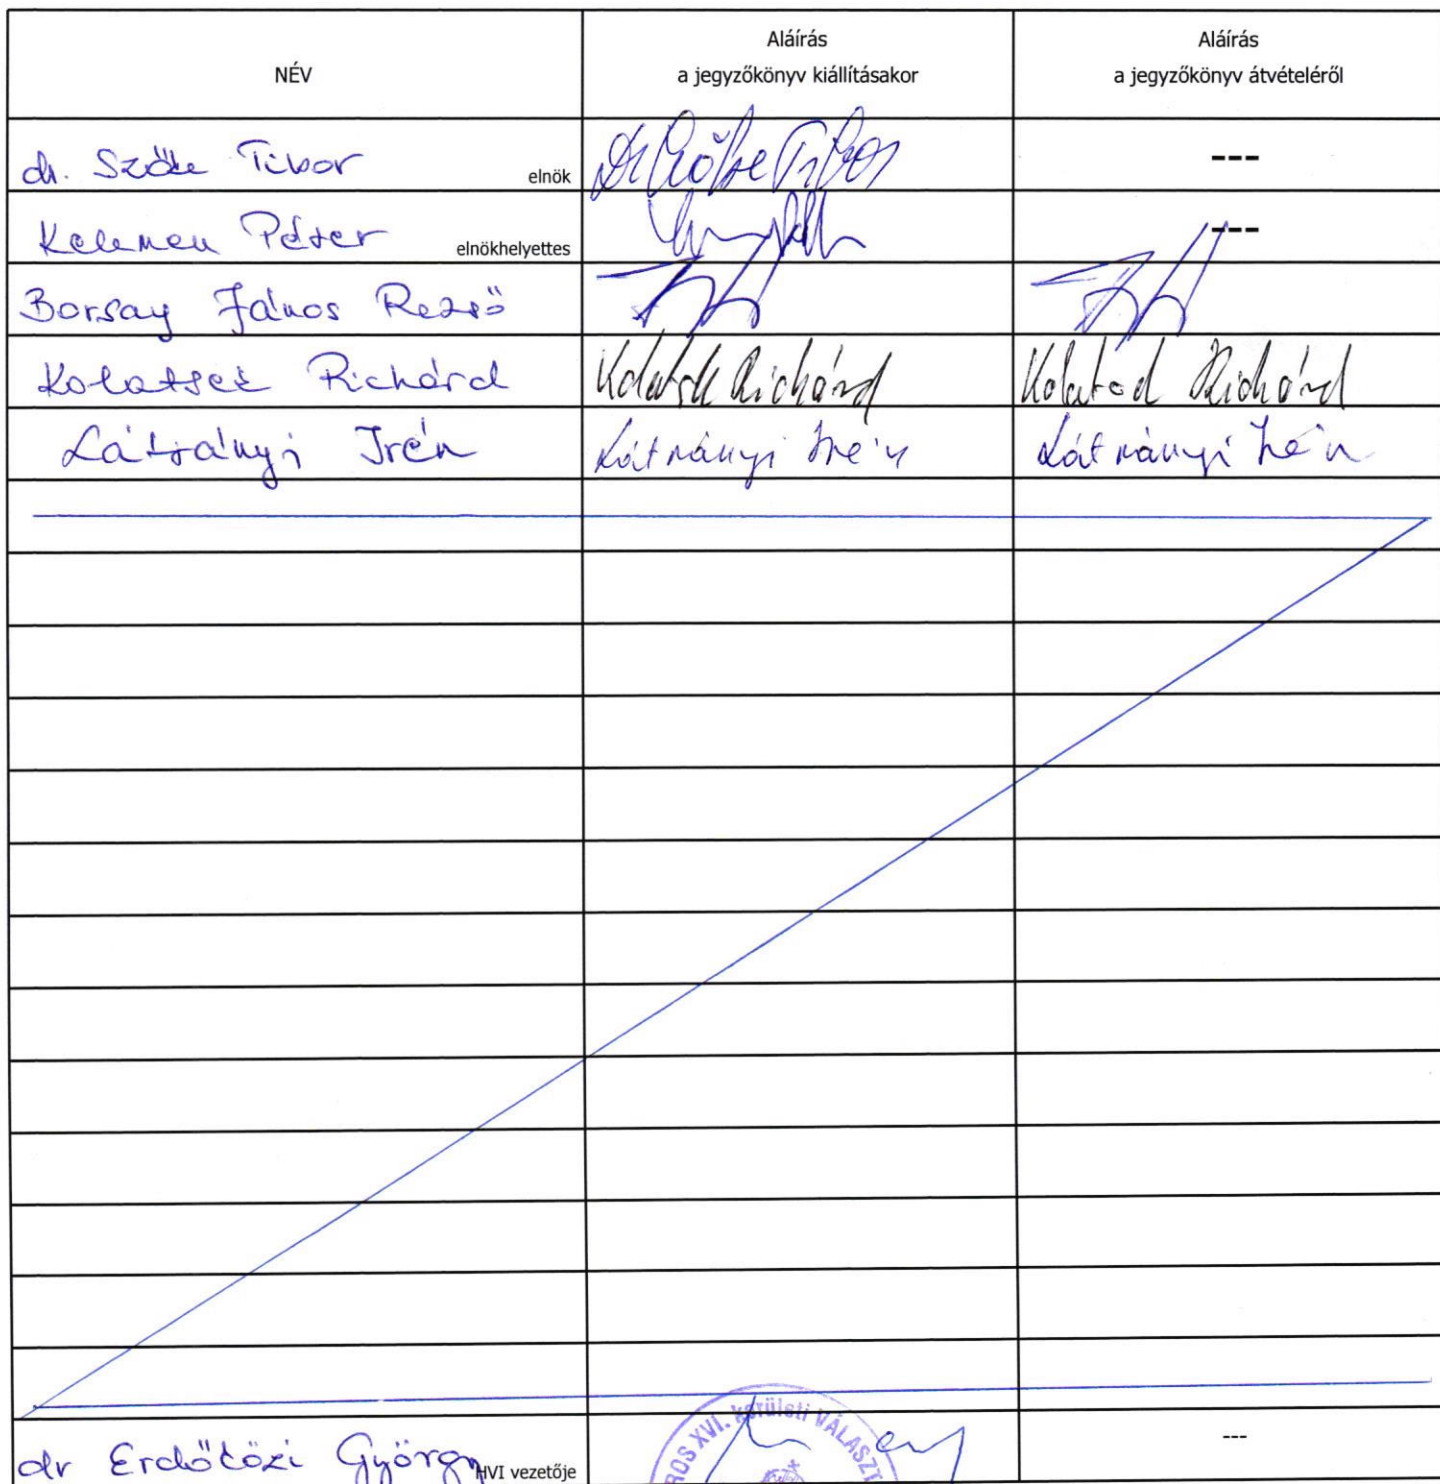 NÉV
Aláírás
a jegyzőkönyv kiállításakor
Aláírás
a jegyzőkönyv átvételéről
dr. Szőke Tibor elnök Dr Szőke Tibor ---
Kelemen Péter elnökhelyettes ---
Borsay János Rezső
Kolatsek Richárd Kolatsek Richárd Richárd
Látrányi Irén Látrányi Irén Látrányi Irén
dr Erdőközi György HVI vezetője ---
ROS XVI. kerületi VÁLASZT